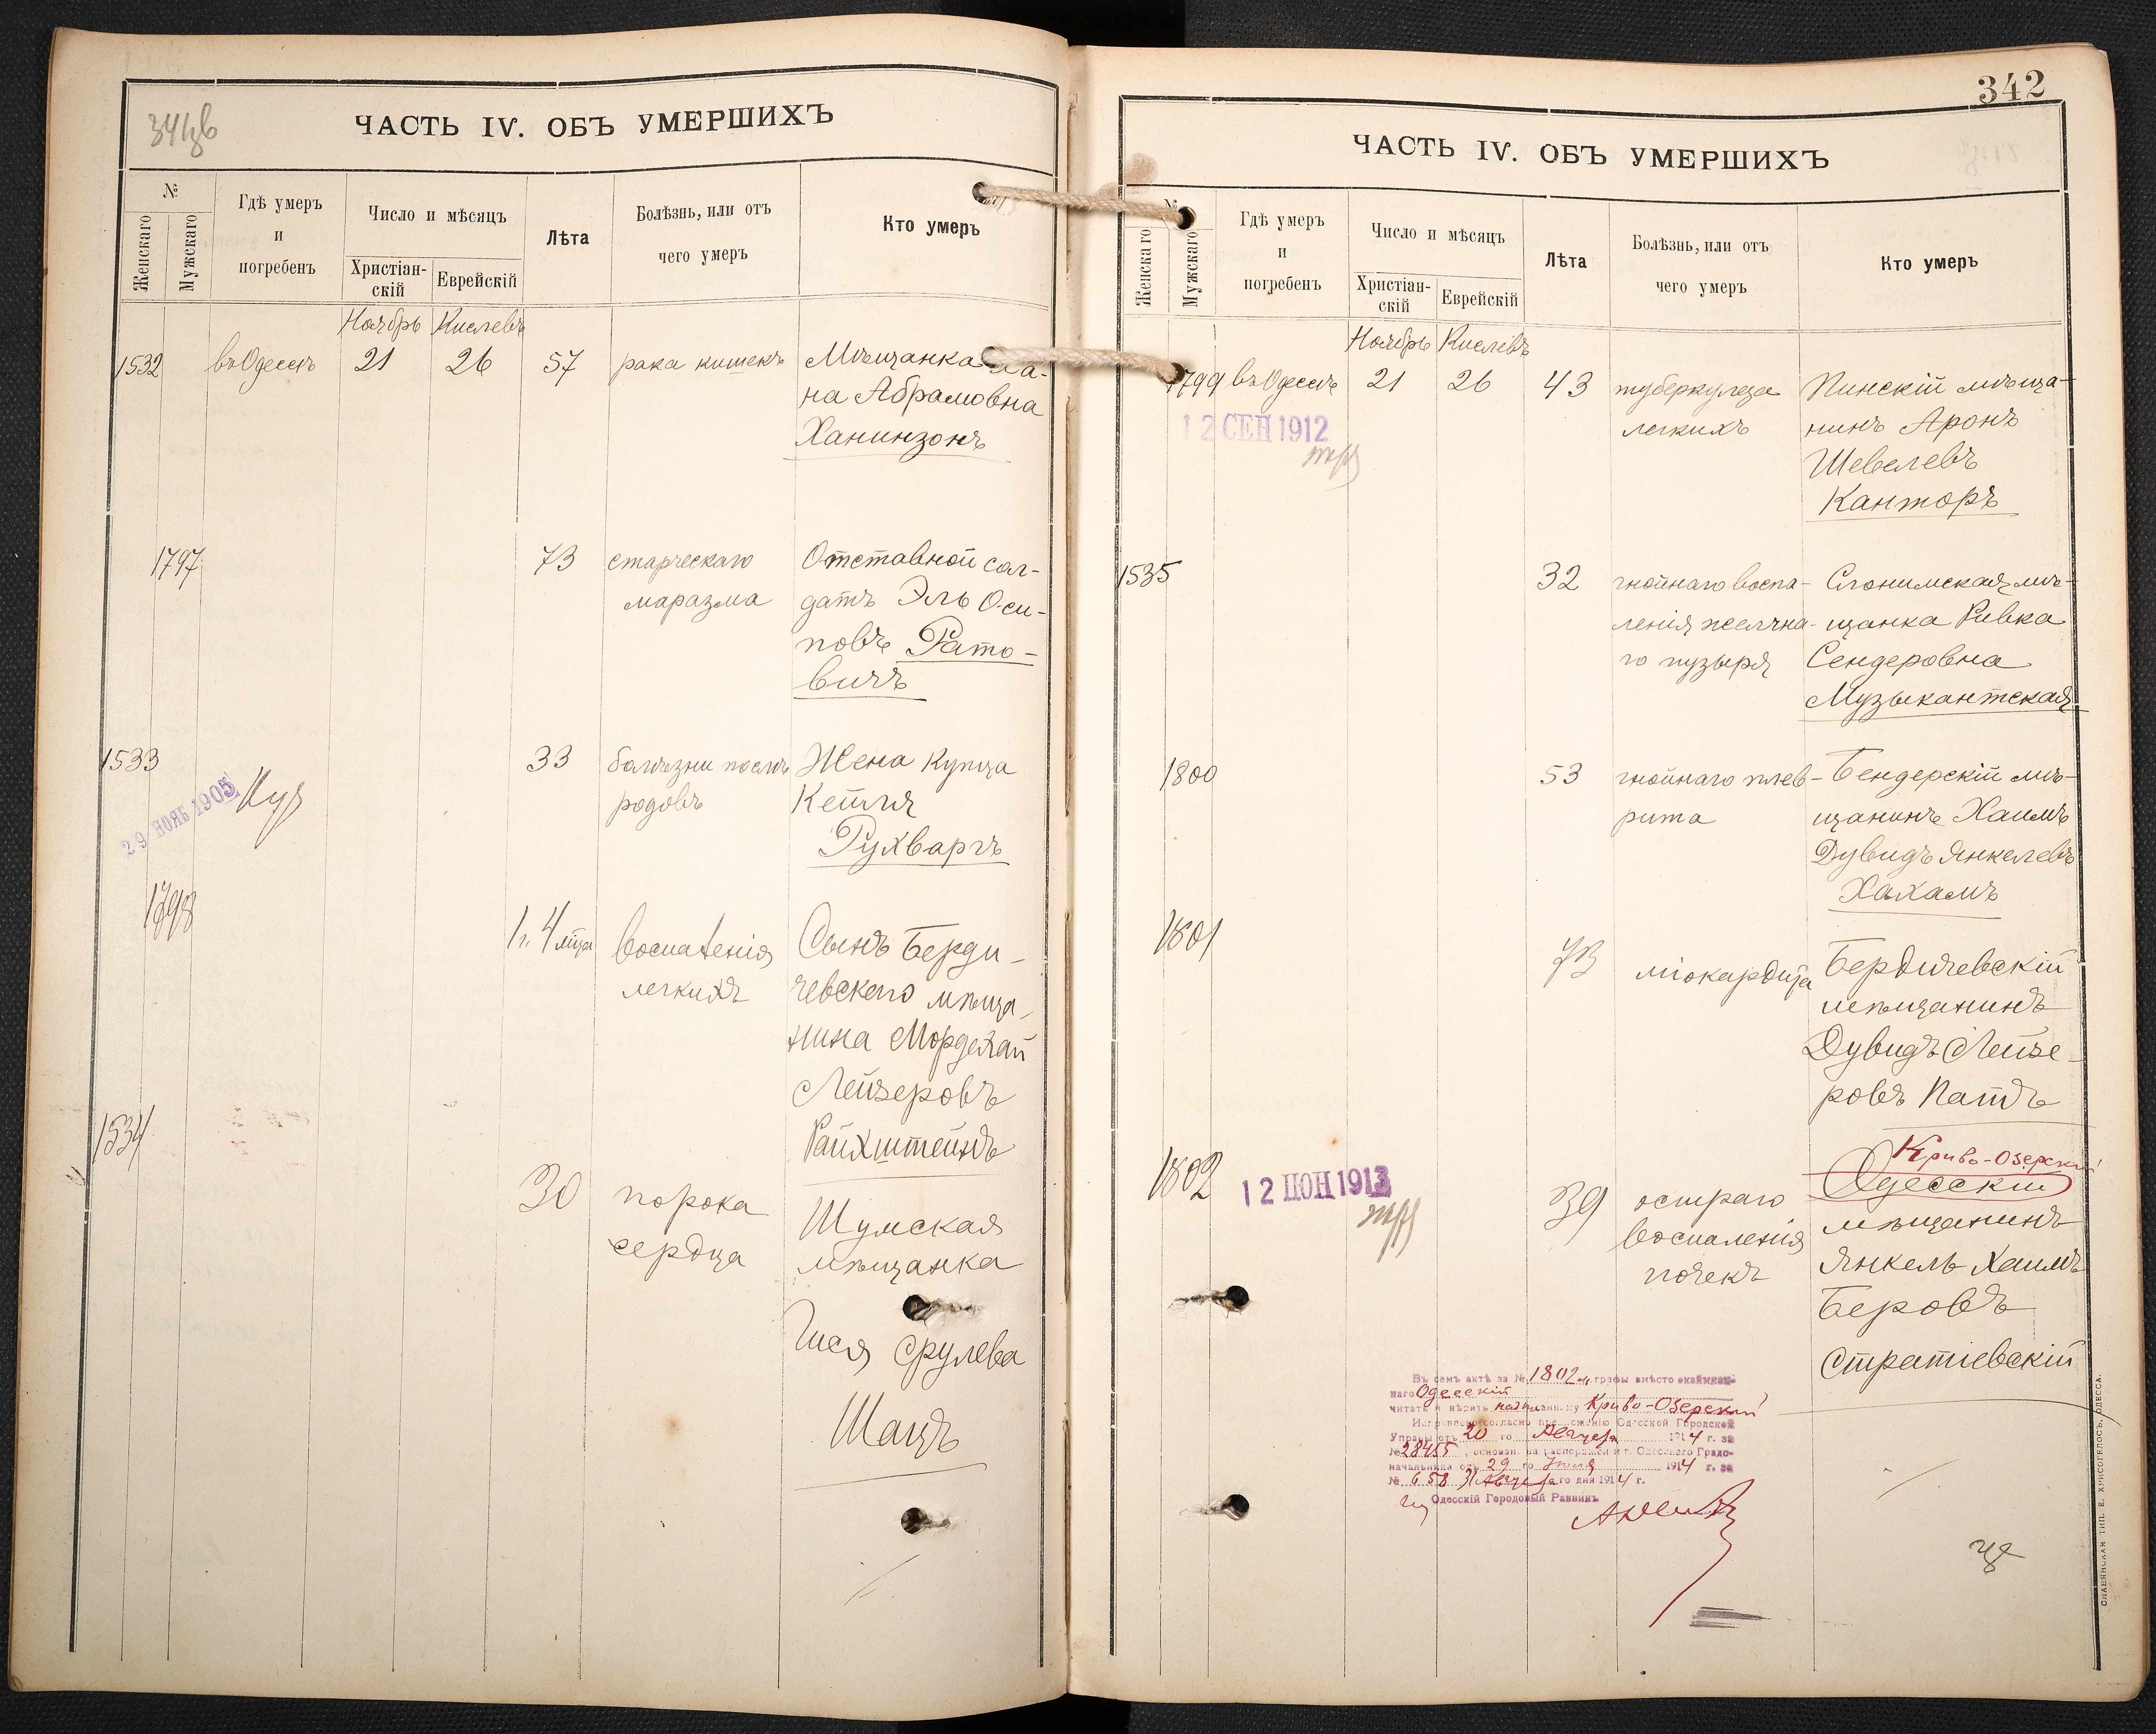 ЧАСТЬ IV. ОБЪ УМЕРШИХЪ
№
Женскаго
Мужскаго
Гдѣ умеръ
и
погребенъ
Число и мѣсяцъ
Христіан-
скій
Еврейскій
Лѣта
Болѣзнь, или отъ
чего умеръ
Кто умеръ
Ноябрь Кислевъ
1532 въ Одессѣ 21 26 57 рака кишекъ Мѣщанка Ха-
на Абрамовна
Ханинзонъ
1797 73 старческаго Отставной сол-
маразма датъ Эль Оси-
повъ Рато-
вичъ
1533 33 болѣзни послѣ Жена купца
родовъ Кейля
Рухваргъ
29 НОЯБ 1905
1798 1 г. 4 мѣца воспаленія Сынъ Берди-
легкихъ чевскаго мѣща-
нина Мордехай
Лейзеровъ
Райхштейнъ
1534 30 порока Шумская
сердца мѣщанка
Гися Срулева
Шацъ
342
ЧАСТЬ IV. ОБЪ УМЕРШИХЪ
№
Женскаго
Мужскаго
Гдѣ умеръ
и
погребенъ
Число и мѣсяцъ
Христіан-
скій
Еврейскій
Лѣта
Болѣзнь, или отъ
чего умеръ
Кто умеръ
Ноябрь Кислевъ
1799 въ Одессѣ 21 26 43 туберкулеза Пинскій мѣща-
легкихъ нинъ Аронъ
Шевелевъ
Канторъ
12 СЕН 1912
1535 32 гнойнаго воспа- Слонимская мѣ-
ленія желчна- щанка Ривка
го пузыря Сендеровна
Музыкантская
1800 53 гнойнаго плев- Бендерскій мѣ-
рита щанинъ Хаимъ
Дувидъ Янкелевъ
Хахамъ
1801 73 міокардита Бердичевскій
мѣщанинъ
Дувидъ Лейзе-
ровъ Патъ
Криво-Озерскій
1802 39 остраго Одесскій
воспаленія мѣщанинъ
почекъ Янкель Хаимъ
Беровъ
Стратіевскій
12 ІЮН 1913
Въ семъ актѣ за № 1802 м. графы вмѣсто
наго Одесскій
читать и вѣрить Криво-Озерскій
Исправлено согласно предложенію Одесской Городской
Управы отъ 20 го Августа 1914 г. за
№ 28455, основан. на распоряженіи г. Одесскаго Градо-
начальника отъ 29 го 1914 г. за
№ 658 31 Августа го дня 1914 г.
Одесскій Городовый Раввинъ
СЛАВЯНСКАЯ ТИП. Е. ХРИСОГЕЛОСЪ, ОДЕССА.